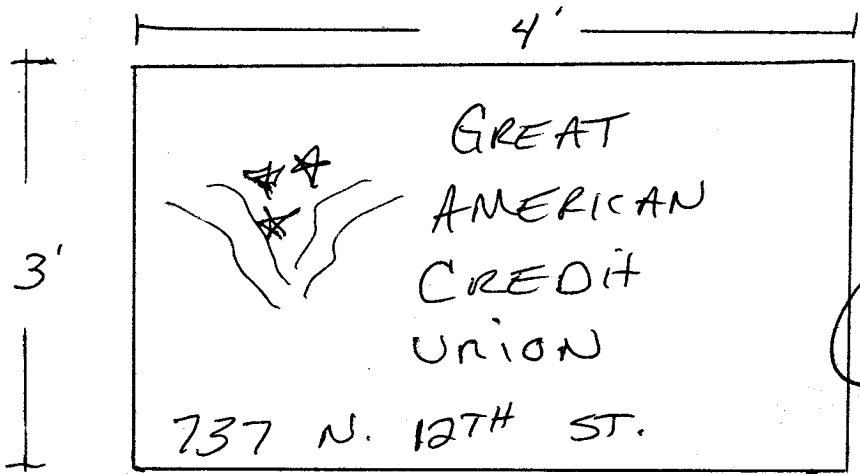 4'
3'
GREAT
AMERICAN
CREDIT
UNION
737 N. 12TH ST.